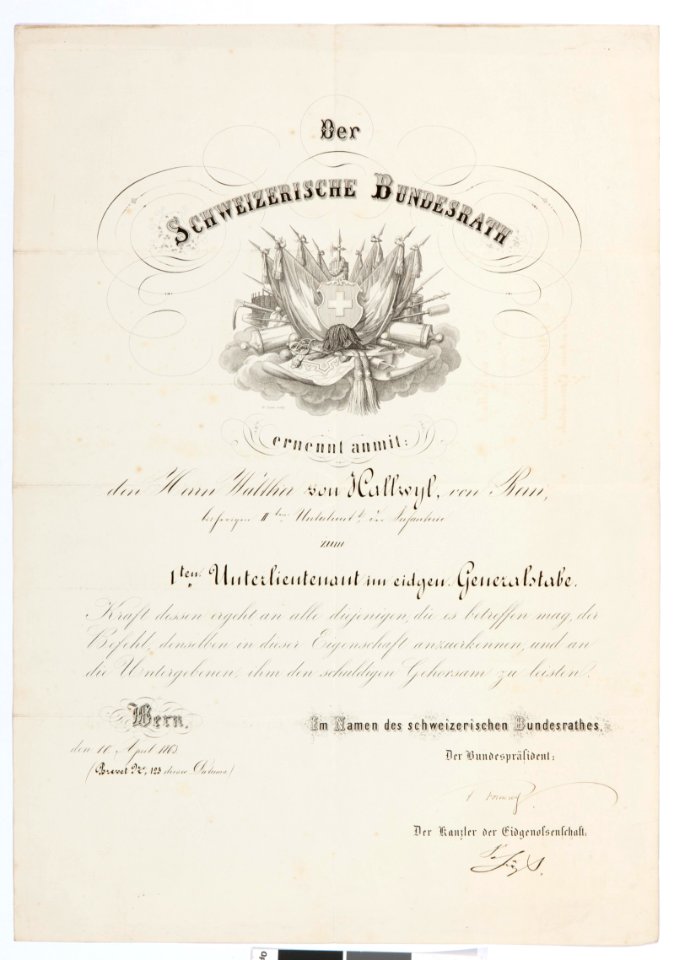 Der
SCHWEIZERISCHE BUNDESRATH
ernennt anmit:
den Herrn Walther von Hallwyl, von Bern,
II ten Unterlieut. der Infanterie
zum
1ten Unterlieutenant im eidgen. Generalstabe.
Kraft dessen ergeht an alle diejenigen, die es betreffen mag, der
Befehl, denselben in dieser Eigenschaft anzuerkennen, und an
die Untergebenen, ihm den schuldigen Gehorsam zu leisten.
Bern,
Im Namen des schweizerischen Bundesrathes,
den 10 April 1863
Der Bundespräsident:
(Brevet No. 123 dieses Datums)
Der Kanzler der Eidgenossenschaft.